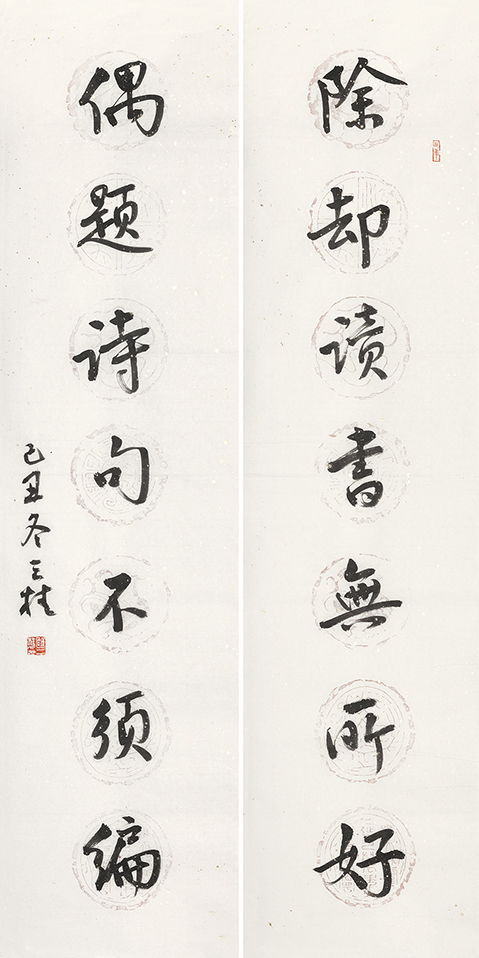 除却读書無所好
偶题诗句不须编
己丑冬三桂